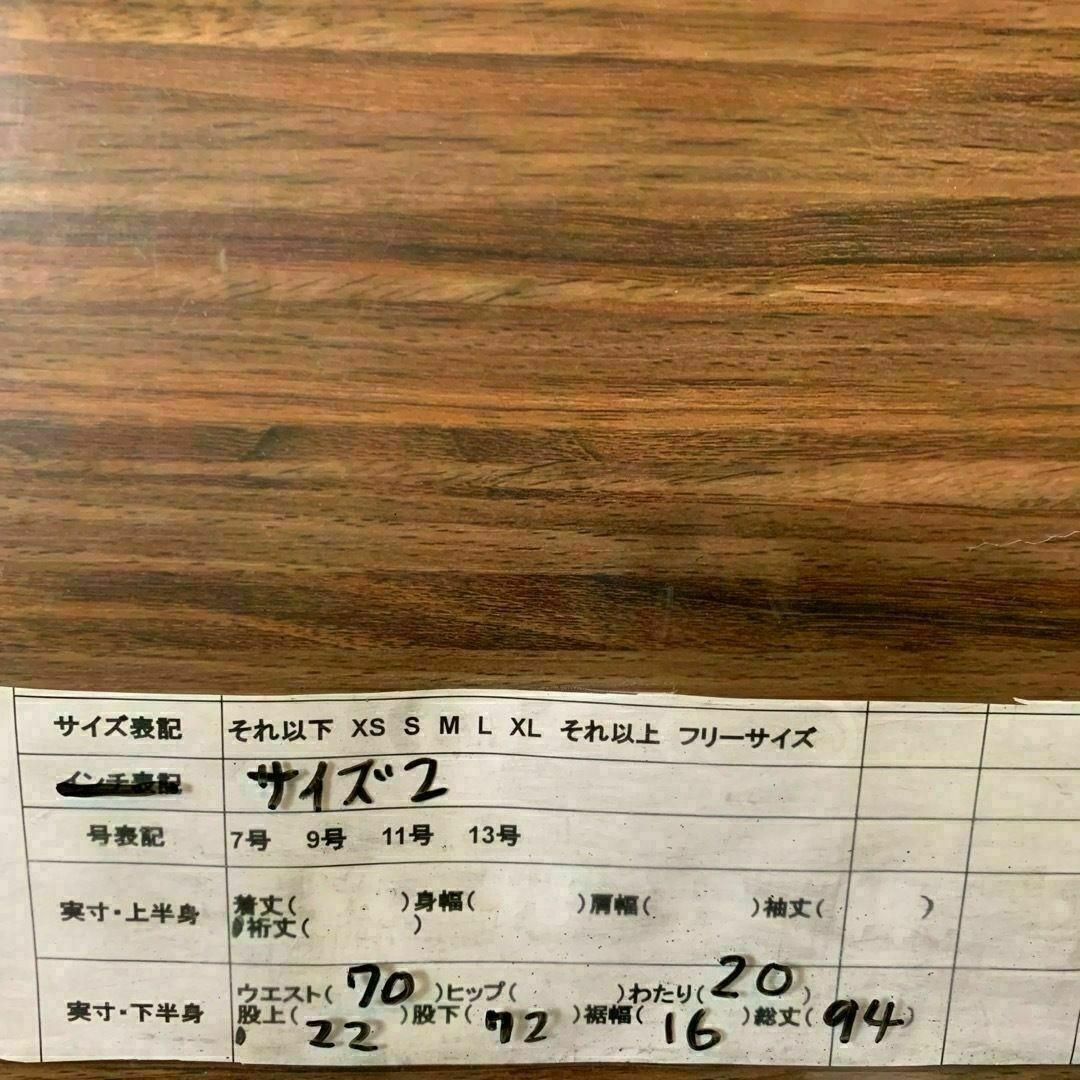 サイズ表記 それ以下 XS S M L XL それ以上 フリーサイズ
インチ表記 サイズ2
号表記 7号 9号 11号 13号
実寸・上半身 着丈( )身幅( )肩幅( )袖丈( )
裄丈( )
実寸・下半身 ウエスト( 70 )ヒップ( )わたり( 20 )
股上( 22 )股下( 72 )裾幅( 16 )総丈( 94 )